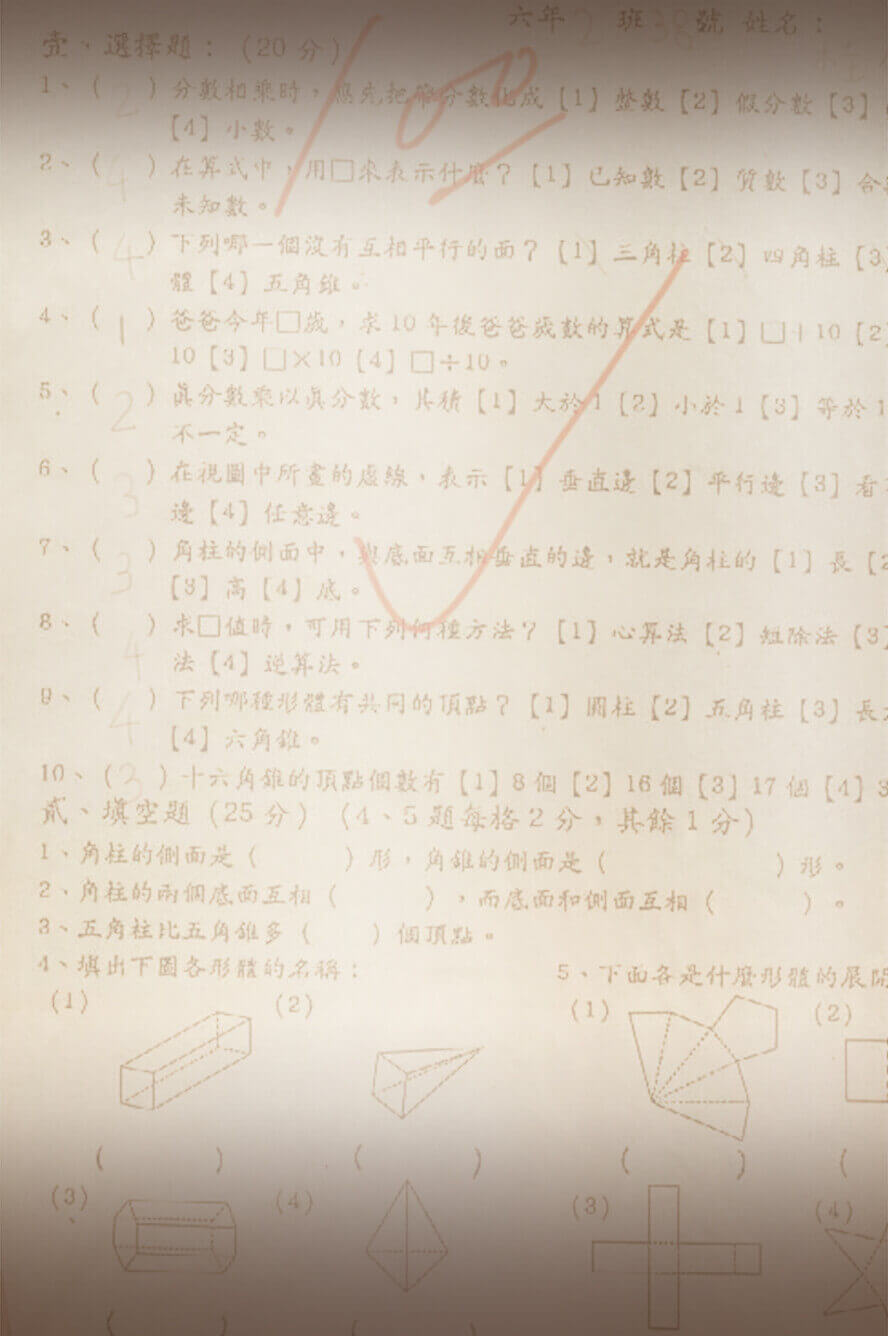 六年2班38號 姓名：
壹、選擇題：（20分）
100
1、（2）分數相乘時，應先把帶分數化成【1】整數【2】假分數【3】
【4】小數。
2、（4）在算式中，用□來表示什麼？【1】已知數【2】質數【3】合
未知數。
3、（4）下列哪一個沒有互相平行的面？【1】三角柱【2】四角柱【3】
體【4】五角錐。
4、（1）爸爸今年□歲，求10年後爸爸歲數的算式是【1】□＋10【2
10【3】□×10【4】□÷10。
5、（2）真分數乘以真分數，其積【1】大於1【2】小於1【3】等於1
不一定。
6、（3）在視圖中所畫的虛線，表示【1】垂直邊【2】平行邊【3】看
邊【4】任意邊。
7、（3）角柱的側面中，與底面互相垂直的邊，就是角柱的【1】長【2
【3】高【4】底。
8、（4）求□值時，可用下列何種方法？【1】心算法【2】短除法【3】
法【4】逆算法。
9、（4）下列哪種形體有共同的頂點？【1】圓柱【2】五角柱【3】長
【4】六角錐。
10、（3）十六角錐的頂點個數有【1】8個【2】16個【3】17個【4】3
貳、填空題（25分）（4、5題每格2分，其餘1分）
1、角柱的側面是（　　）形，角錐的側面是（　　）形。
2、角柱的兩個底面互相（　　），而底面和側面互相（　　）。
3、五角柱比五角錐多（　　）個頂點。
4、填出下圖各形體的名稱：
5、下面各是什麼形體的展開
(1) (2) (1) (2)
（　　）（　　）（　　）（
(3) (4) (3) (4)